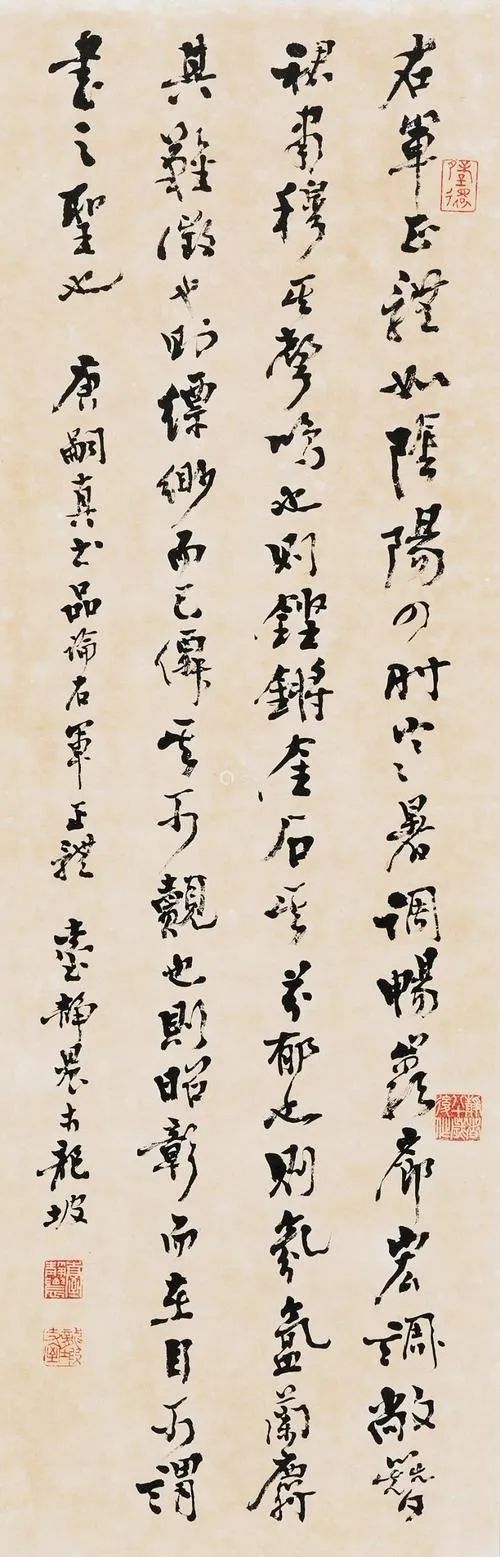 右軍正體如陰陽四時寒暑調暢巖廊宏調敞簪
裾肅穆其聲鳴也則鏗鏘金石其芬郁也則氛氳蘭麝
其難徵也則縹緲而已僊其可覿也則昭彰而在目可謂
書之聖也 唐嗣真書品論右軍正體 臺靜農於龍坡
臺靜農